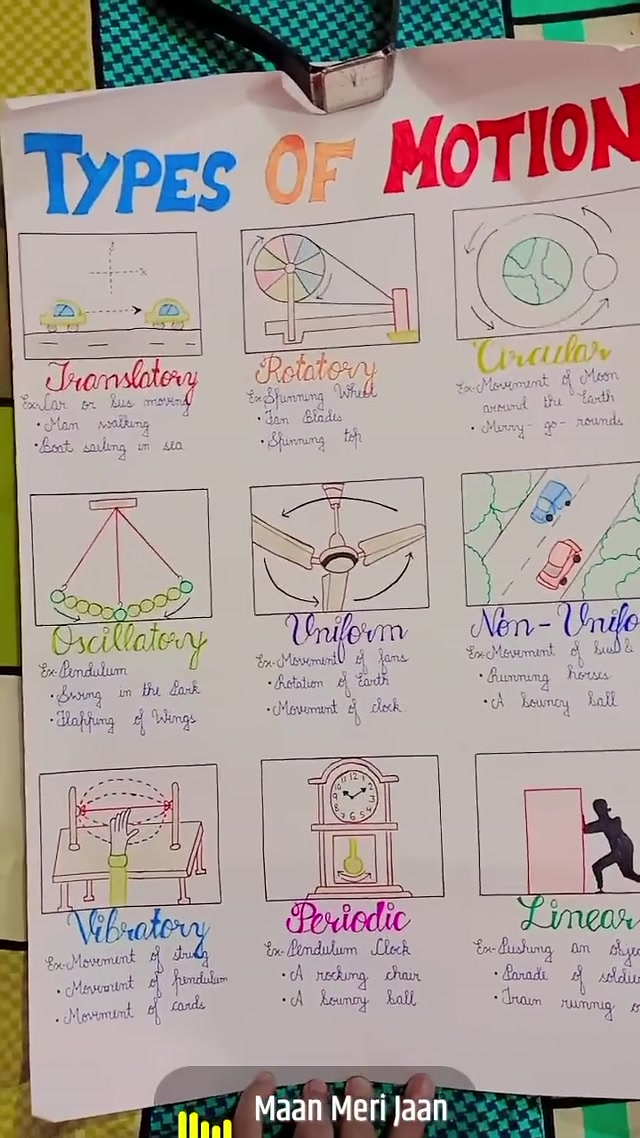 TYPES OF MOTION
Translatory
Ex-Car or bus moving
• Man walking
• Boat sailing in sea
Rotatory
Ex-Spinning Wheel
• Fan Blades
• Spinning top
Circular
Ex-Movement of Moon
around the Earth
• Merry-go-rounds
Oscillatory
Ex-Pendulum
• Swing in the Park
• Flapping of Wings
Uniform
Ex-Movement of fans
• Rotation of Earth
• Movement of clock
Non-Unifo
Ex-Movement of bus &
• Running horses
• A bouncy ball
Vibratory
Ex-Movement of string
• Movement of pendulum
• Movement of cards
Periodic
Ex-Pendulum Clock
• A rocking chair
• A bouncy ball
Linear
Ex-Pushing an obje
• Parade of soldie
• Train runnig o
Maan Meri Jaan